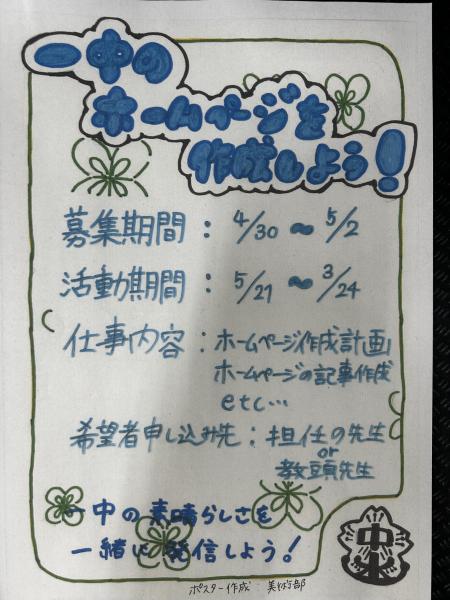 一中の
ホームページを
作成しよう!
募集期間 : 4/30 〜 5/2
活動期間 : 5/21 〜 3/24
仕事内容 : ホームページ作成計画
ホームページの記事作成
etc…
希望者申し込み先 : 担任の先生
or
教頭先生
一中の素晴らしさを
一緒に発信しよう!
中
ポスター作成 : 美術部